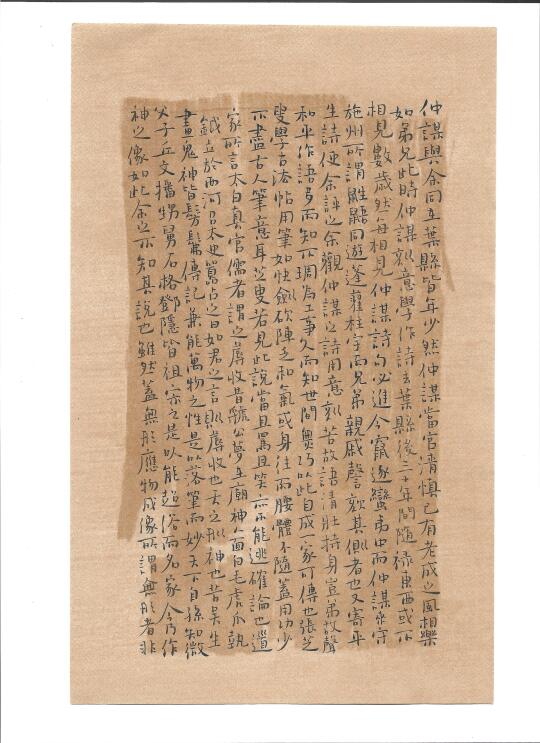 仲謀與余同在葉縣皆年少然仲謀當官清慎已有老成之風相樂
如弟兄此時仲謀刻意學作詩去葉縣後二十年間隨祿東西或不
相見數歲然每相見仲謀詩句必進今竄逐蠻夷中而仲謀來守
施州所謂鼪鼯同遊蓬藋柱宇而兄弟親戚謦欬其側者也又寄平
生詩使余評之余觀仲謀之詩用意刻苦故語清壯持身豈弟故聲
和平作語多而知不琱為工事久而知世間奧巧以此自成一家可傳也張芝
叟學古法帖用筆如快劍斫陣乏和氣或身往而腰體不隨蓋用功少
不盡古人筆意耳芝叟若見此說當且罵且笑亦不能逃確論也道
家所言太白真官儒者謂之蓐收昔虢公夢在廟神人面白毛虎爪執
鉞立於西河召太史嚚占之曰如君之言則蓐收也天之刑神也昔吳生
畫鬼神皆髣髴傳記兼能萬物之性是以落筆而妙天下自孫知微
父子丘文播甥舅石格鄧隱皆祖宗之是以能超俗而名家今乃作
神之像如此余之不知其說也雖然蓋無形應物成像所謂無形者非